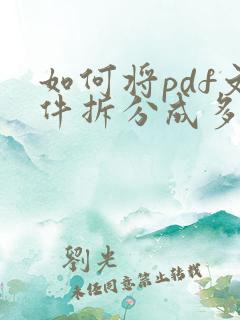 如何将pdf文
件拆分成多
劉光
未经同意禁止转载